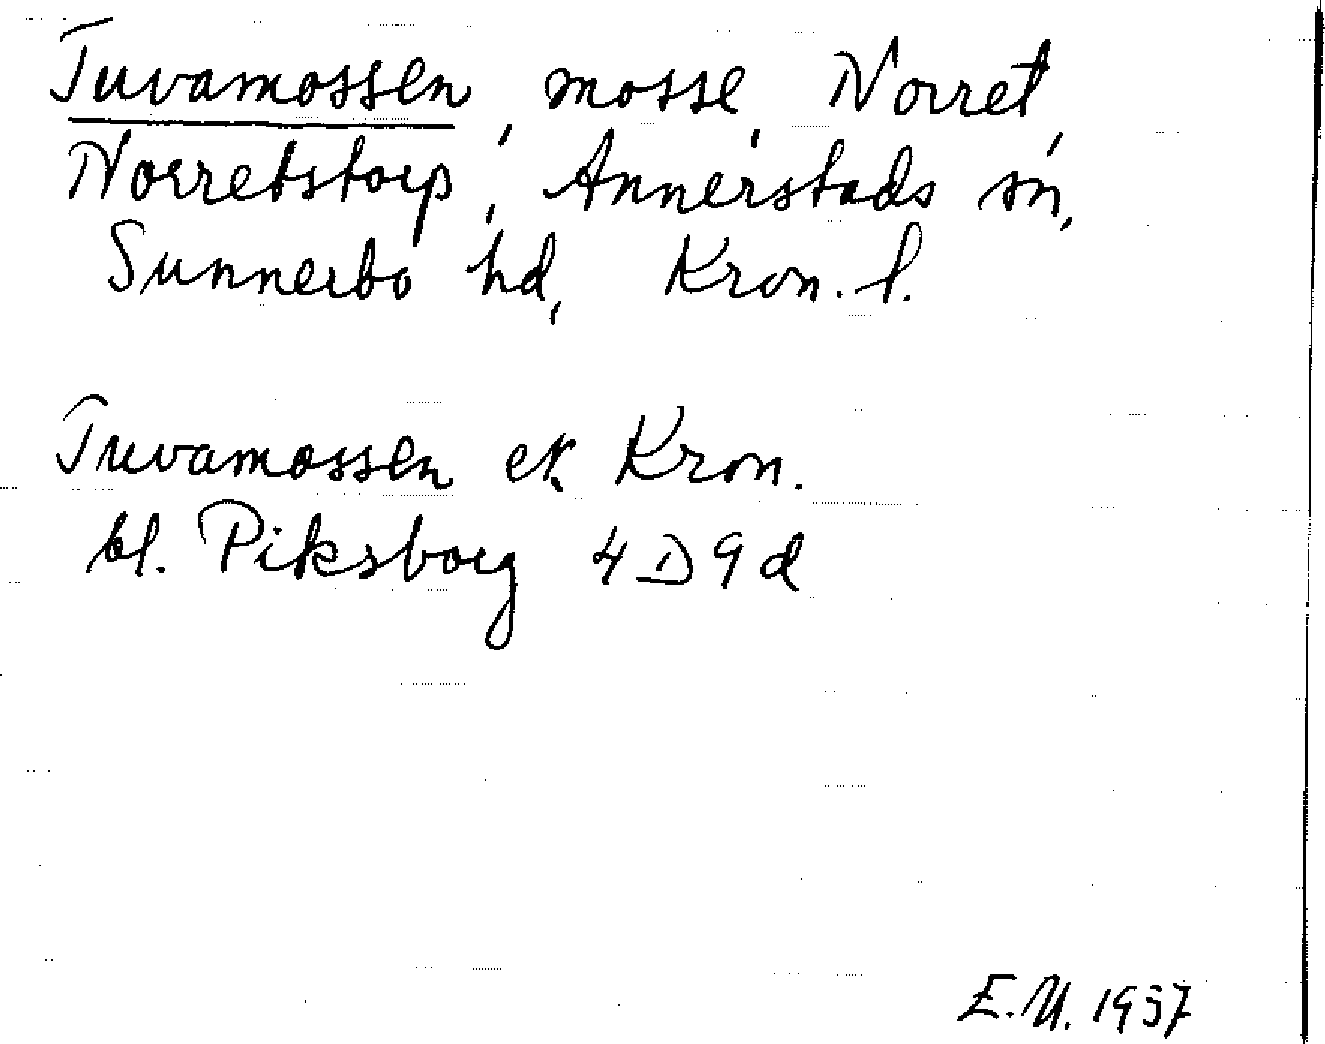 Tuvamossen, mosse, Norret,
Norretstorp, Annerstads sn,
Sunnerbo hd, Kron. l.
Tuvamossen ek Kron.
bl. Piksborg 4D9d
E.U. 1957